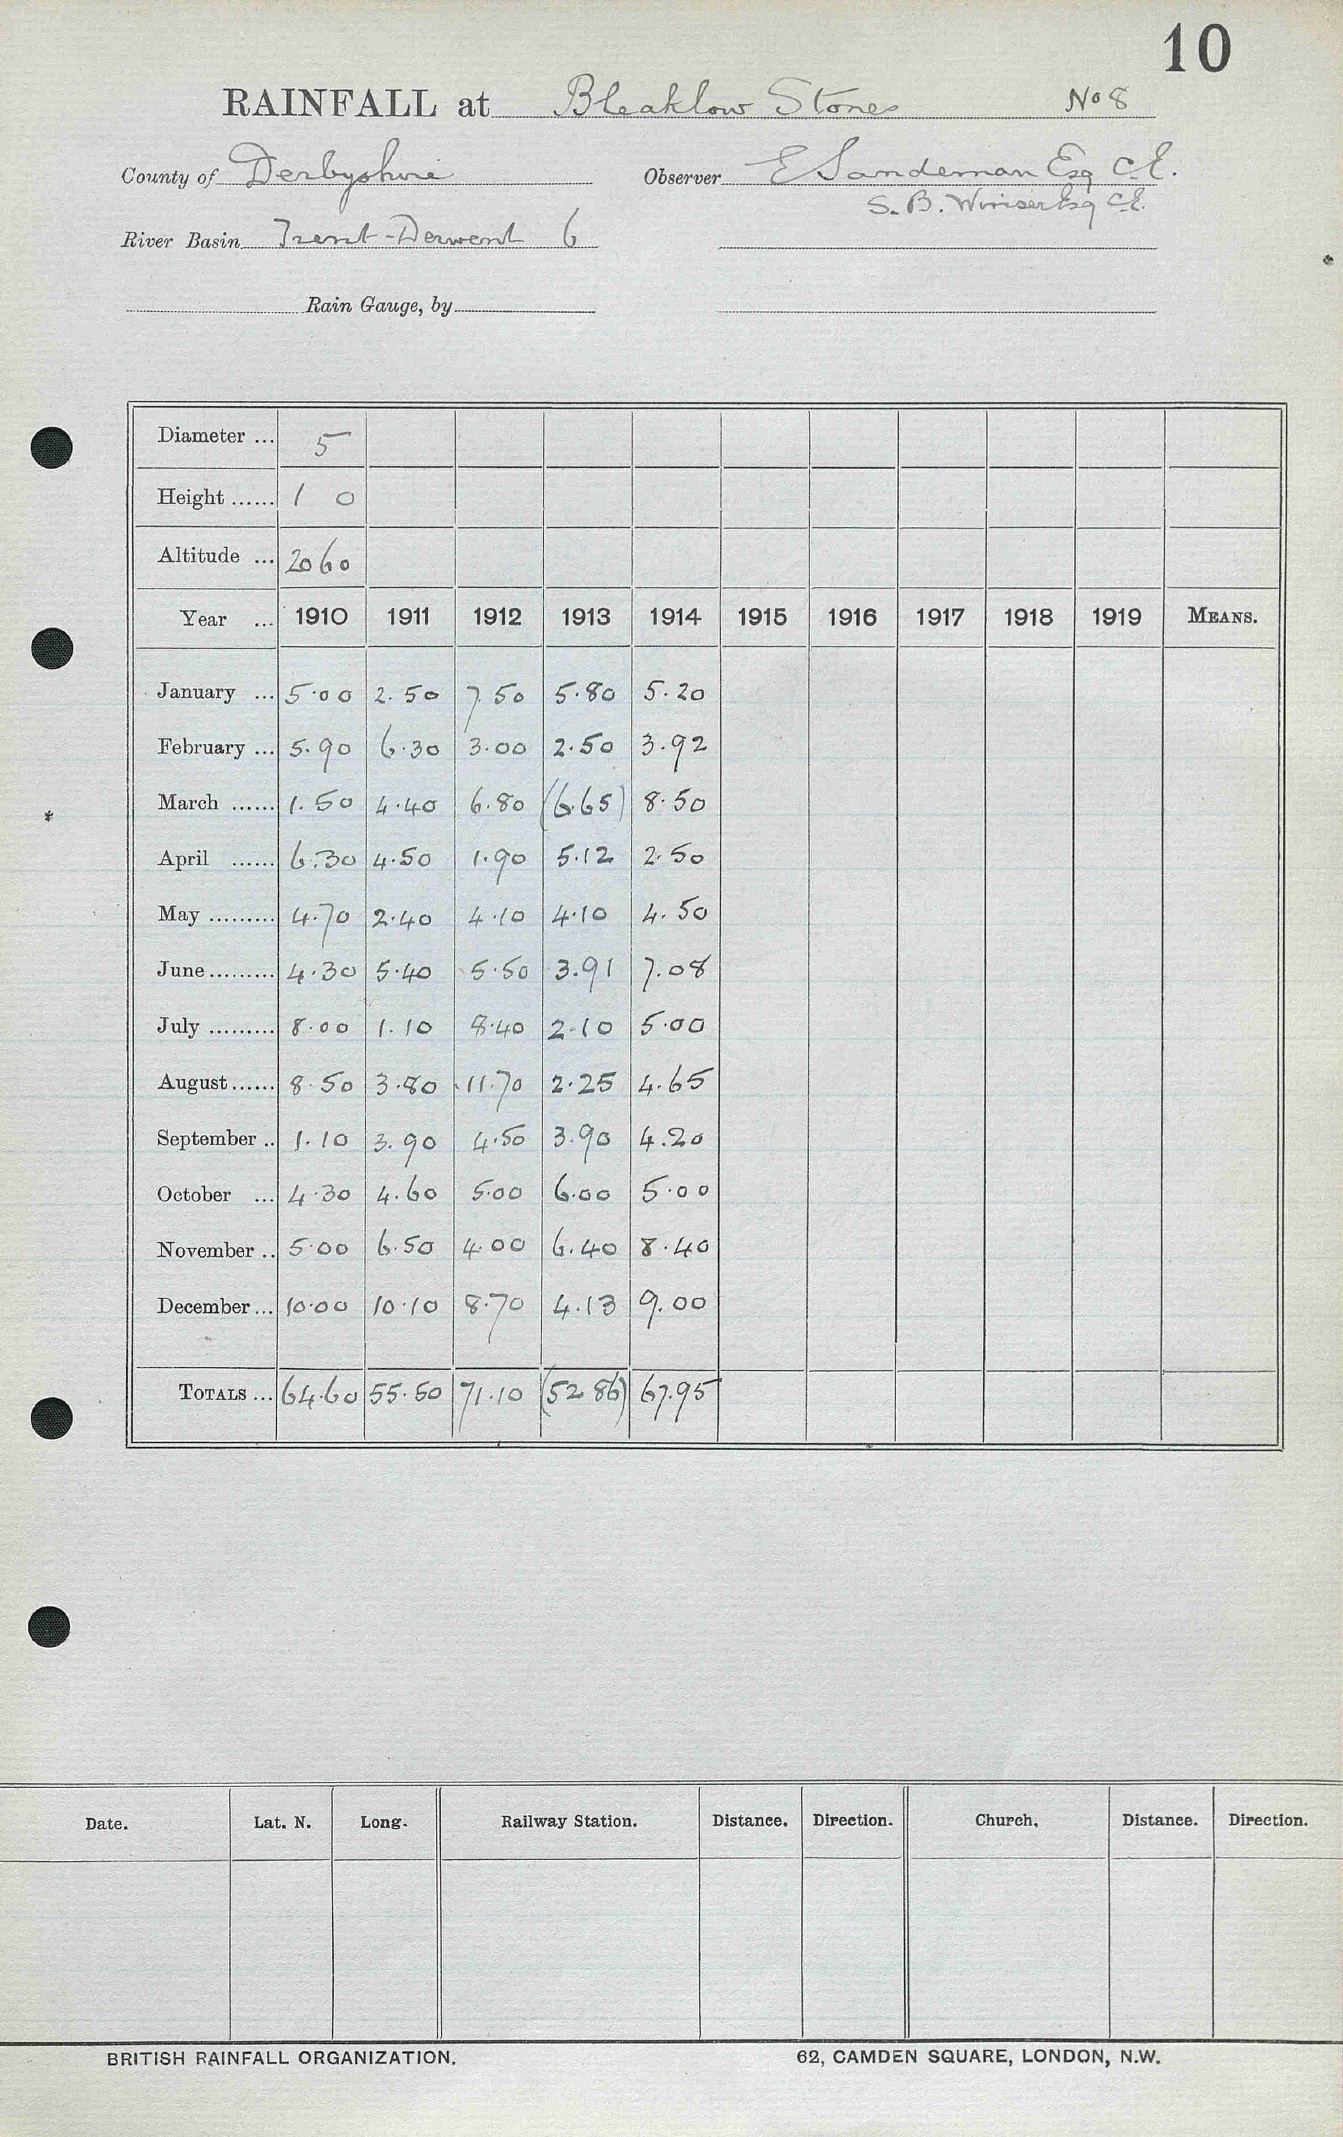 10
RAINFALL at Bleaklow Stones No 8
County of Derbyshire Observer E Sandeman Esq C.E.
S. B. Winser Esq C.E.
River Basin Trent-Derwent 6
Rain Gauge, by
Diameter ... 5
Height ...... 1 0
Altitude ... 2060
Year ... 1910 1911 1912 1913 1914 1915 1916 1917 1918 1919 MEANS.
January ... 5.00 2.50 7.50 5.80 5.20
February ... 5.90 6.30 3.00 2.50 3.92
March ...... 1.50 4.40 6.80 (6.65) 8.50
April ...... 6.30 4.50 1.90 5.12 2.50
May ......... 4.70 2.40 4.10 4.10 4.50
June ......... 4.30 5.40 5.50 3.91 7.08
July ......... 8.00 1.10 8.40 2.10 5.00
August ...... 8.50 3.80 11.70 2.25 4.65
September .. 1.10 3.90 4.50 3.90 4.20
October ... 4.30 4.60 5.00 6.00 5.00
November .. 5.00 6.50 4.00 6.40 8.40
December ... 10.00 10.10 8.70 4.13 9.00
TOTALS ... 64.60 55.50 71.10 (52.86) 67.95
Date. Lat. N. Long. Railway Station. Distance. Direction. Church. Distance. Direction.
BRITISH RAINFALL ORGANIZATION. 62, CAMDEN SQUARE, LONDON, N.W.